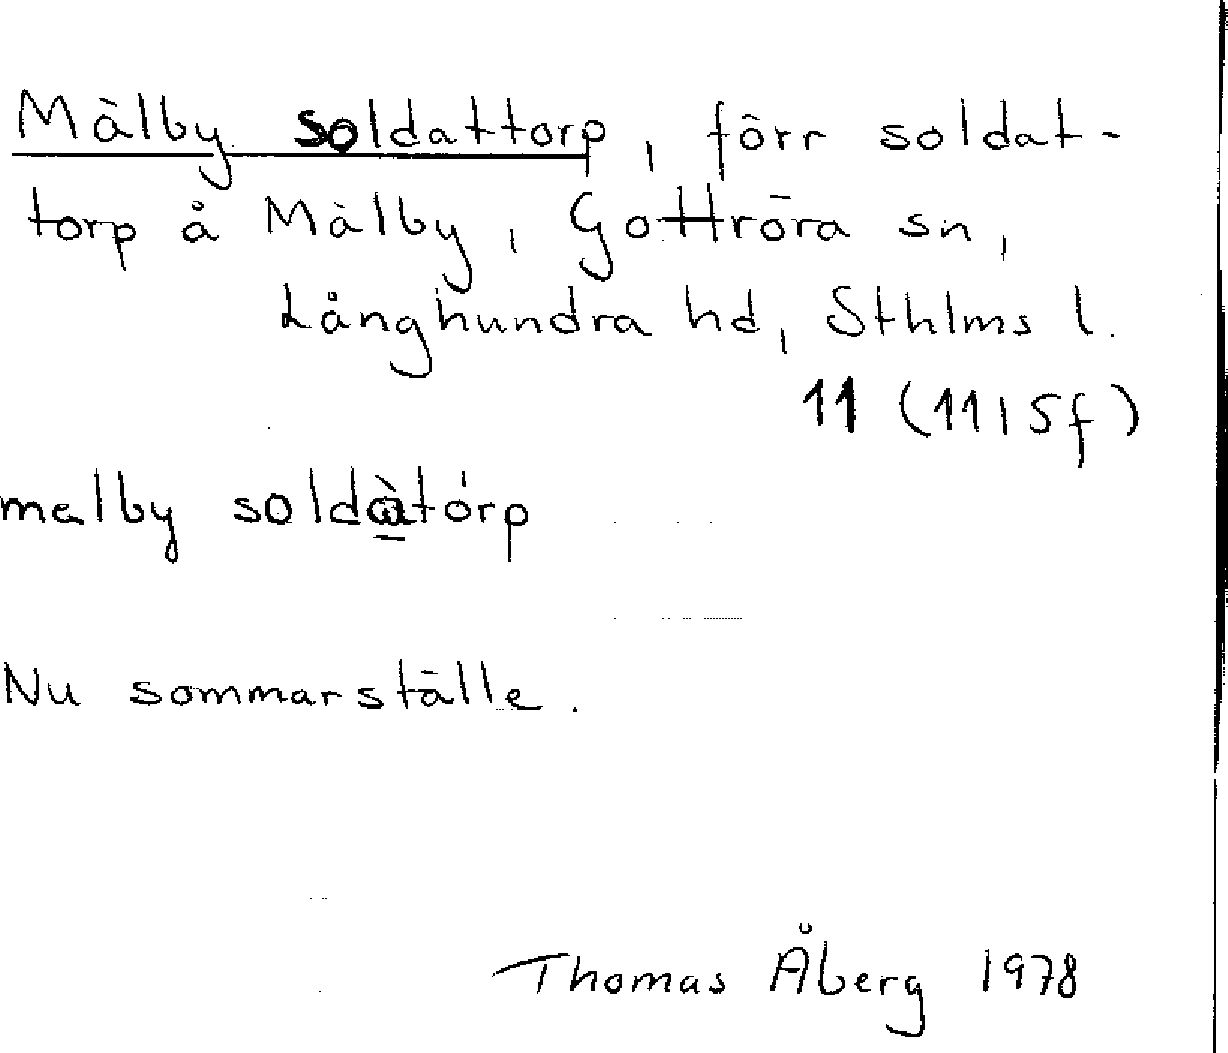 Mälby soldattorp, förr soldat-
torp å Mälby, Gottröra sn,
Långhundra hd, Sthlms l.
11 (11I 5f)
malby soldàtórp
Nu sommarställe.
Thomas Åberg 1978